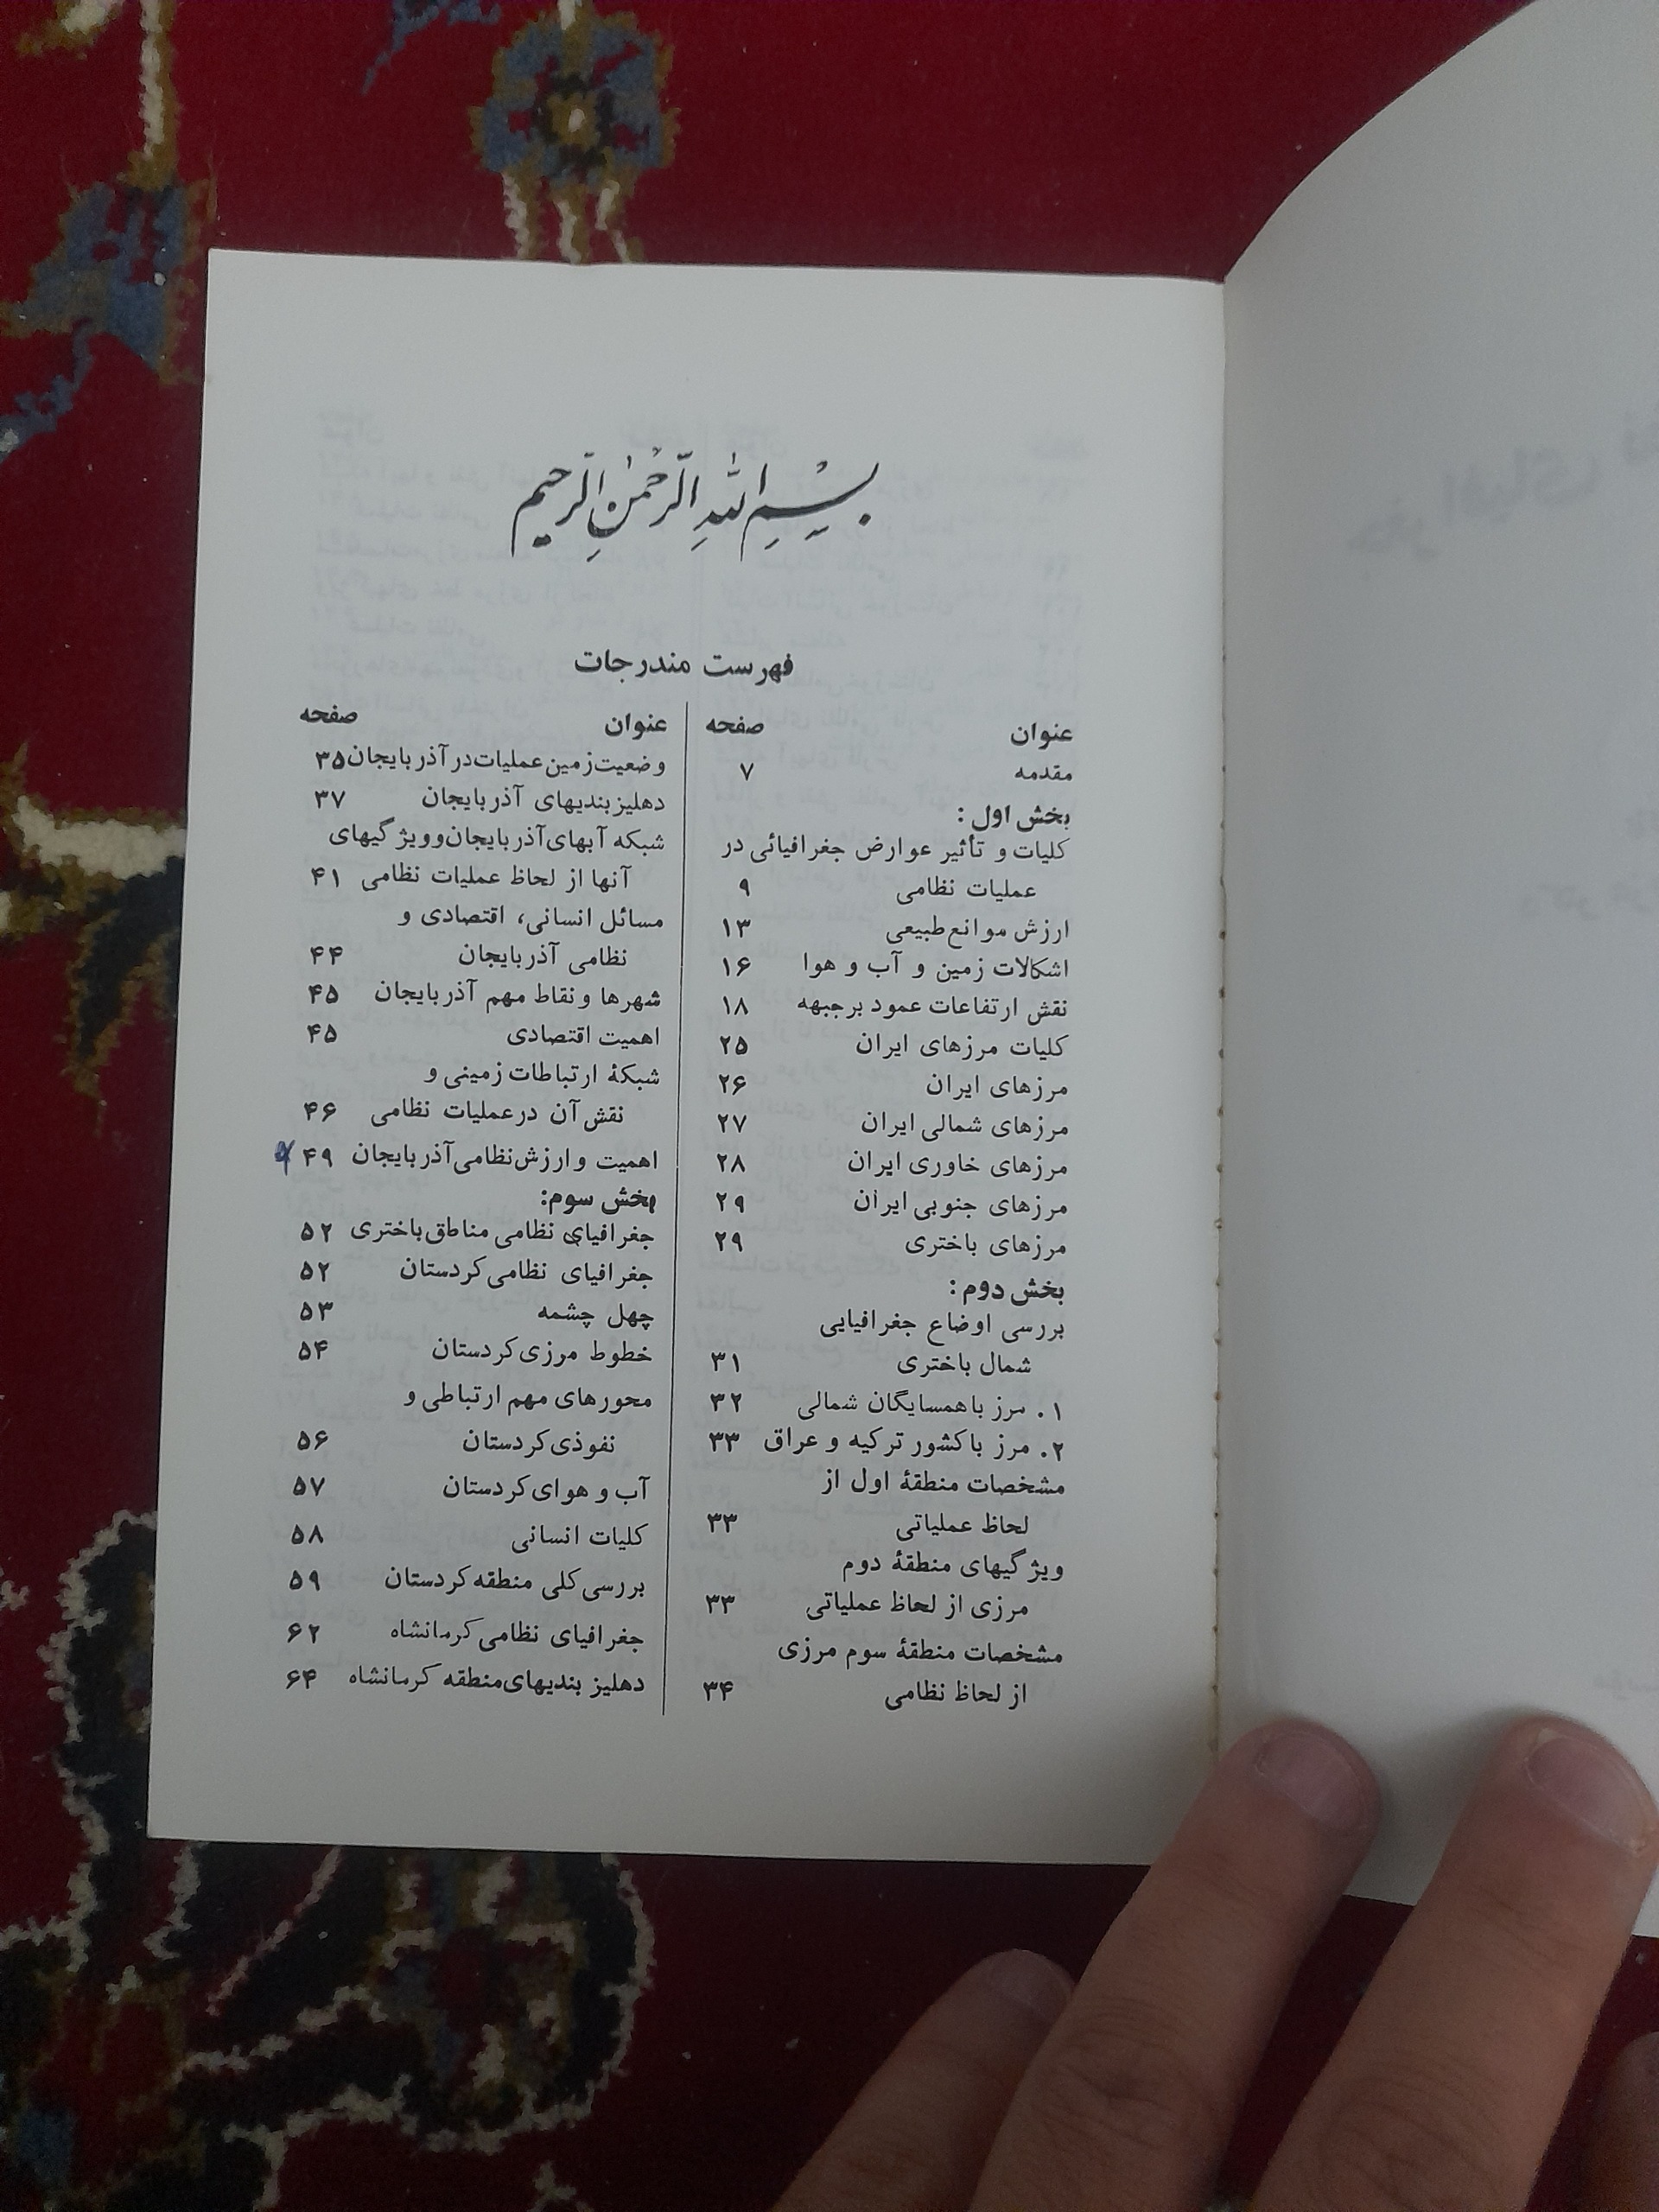 بِسْمِ اللهِ الرَّحْمٰنِ الرَّحیم
فهرست مندرجات
عنوان صفحه
مقدمه ۷
بخش اول:
کلیات و تأثیر عوارض جغرافیائی در
عملیات نظامی ۹
ارزش موانع طبیعی ۱۳
اشکالات زمین و آب و هوا ۱۶
نقش ارتفاعات عمود برجبهه ۱۸
کلیات مرزهای ایران ۲۵
مرزهای ایران ۲۶
مرزهای شمالی ایران ۲۷
مرزهای خاوری ایران ۲۸
مرزهای جنوبی ایران ۲۹
مرزهای باختری ۲۹
بخش دوم:
بررسی اوضاع جغرافیایی
شمال باختری ۳۱
۱. مرز با همسایگان شمالی ۳۲
۲. مرز با کشور ترکیه و عراق ۳۳
مشخصات منطقهٔ اول از
لحاظ عملیاتی ۳۳
ویژگیهای منطقهٔ دوم
مرزی از لحاظ عملیاتی ۳۳
مشخصات منطقهٔ سوم مرزی
از لحاظ نظامی ۳۴
عنوان صفحه
وضعیت زمین عملیات در آذربایجان ۳۵
دهلیزبندیهای آذربایجان ۳۷
شبکه آبهای آذربایجان و ویژگیهای
آنها از لحاظ عملیات نظامی ۴۱
مسائل انسانی، اقتصادی و
نظامی آذربایجان ۴۴
شهرها و نقاط مهم آذربایجان ۴۵
اهمیت اقتصادی ۴۵
شبکهٔ ارتباطات زمینی و
نقش آن در عملیات نظامی ۴۶
اهمیت و ارزش نظامی آذربایجان ۴۹
بخش سوم:
جغرافیای نظامی مناطق باختری ۵۲
جغرافیای نظامی کردستان ۵۲
چهل چشمه ۵۳
خطوط مرزی کردستان ۵۴
محورهای مهم ارتباطی و
نفوذی کردستان ۵۶
آب و هوای کردستان ۵۷
کلیات انسانی ۵۸
بررسی کلی منطقه کردستان ۵۹
جغرافیای نظامی کرمانشاه ۶۲
دهلیز بندیهای منطقه کرمانشاه ۶۴